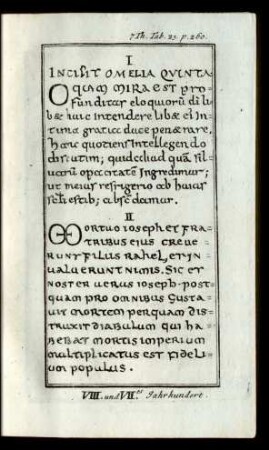 7 Th. Tab. 23. p. 260.
I
INCIPIT OMELIA QUINTA
O quam mira est pro
funditas eloquiorū dī lu
bæ huic intendere libæ ei In
tima gratia duce penærare.
hanc quotiens Intellegendo
discutim; quid aliud quā sil
uarū opacitatē Ingredimur;
ut meius refrigerio ab huius
sclī estib; abscdamur.
II
MORTUO IOSEPH ET FRA
TRIBUS EIUS CREVE
RUNT FILII ISRAHEL, ET IN
VALUERUNT NIMIS. SIC ET
NOSTER VERUS IOSEPH. POST
QUAM PRO OMNIBUS GUSTA
VIT MORTEM PER QUAM DIS
TRUXIT DIABULUM QUI HA
BEBAT MORTIS IMPERIUM
MULTIPLICATUS EST FIDELI
UM POPULUS.
VIII. und VII.ts Jahrhundert.